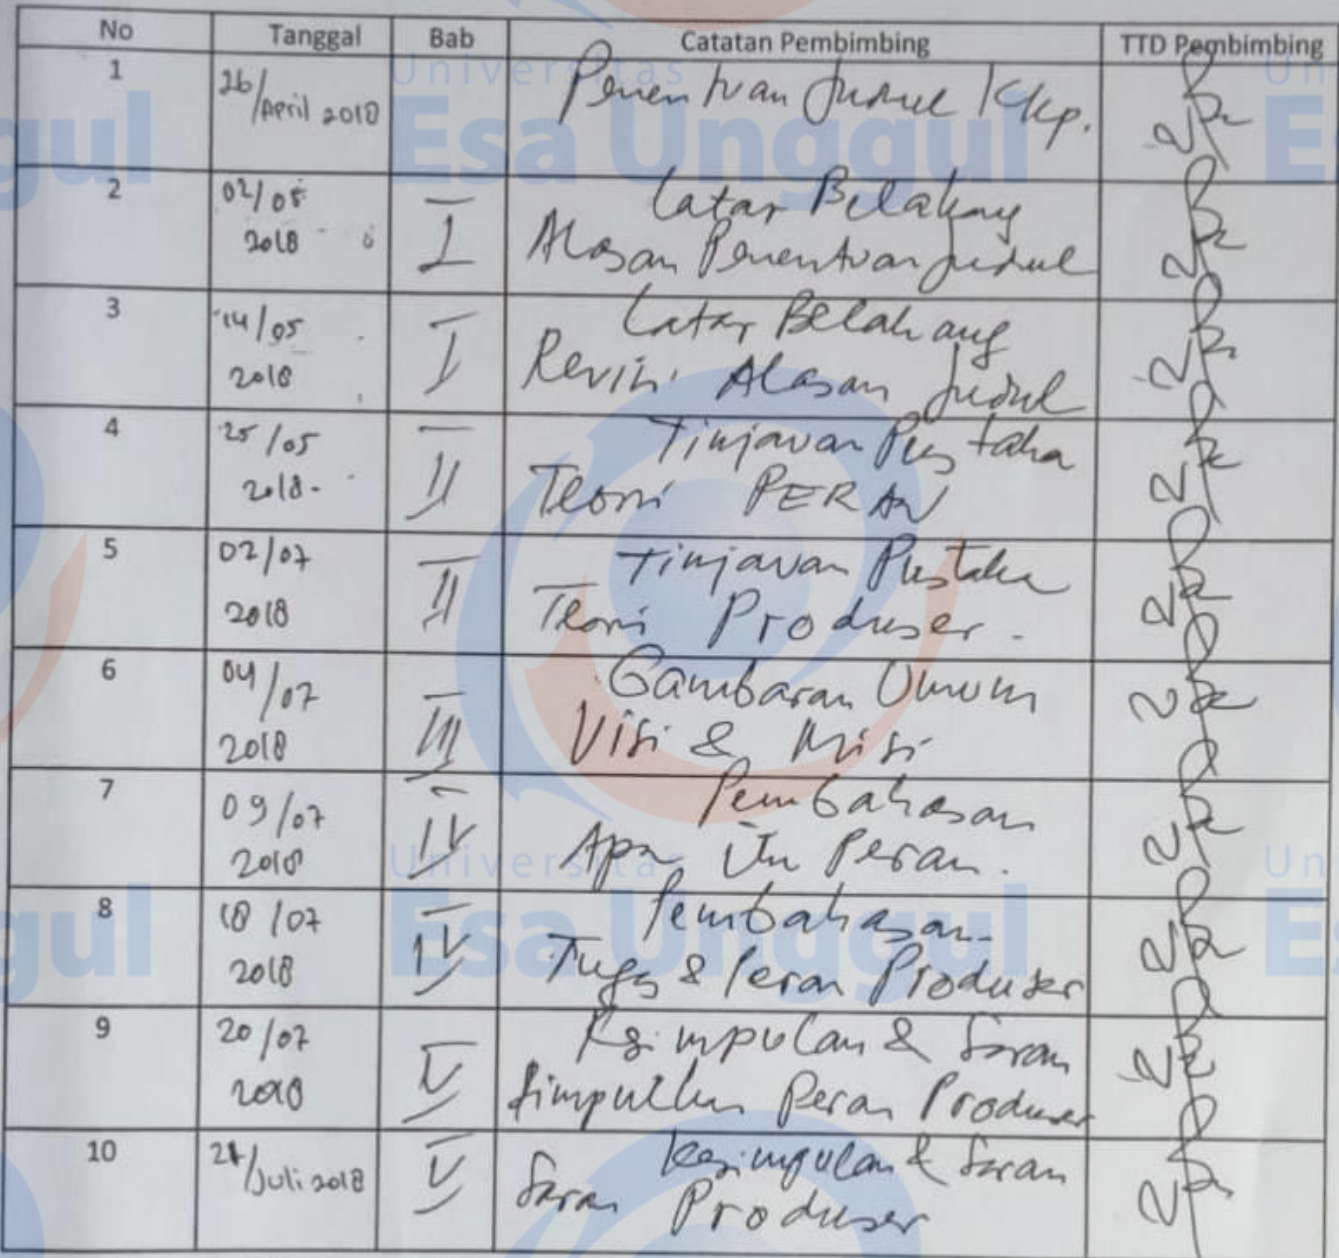 No Tanggal Bab Catatan Pembimbing TTD Pembimbing
1 26/April 2018 Penentuan Judul KKp.
2 02/05 2018 I Latar Belakang
Alasan Penentuan Judul
3 14/05 2018 I Latar Belakang
Revisi Alasan Judul
4 25/05 2018 II Tinjauan Pustaka
Teori PERAN
5 02/07 2018 II Tinjauan Pustaka
Teori Produser.
6 04/07 2018 III Gambaran Umum
Visi & Misi
7 09/07 2018 IV Pembahasan
Apa itu Peran.
8 18/07 2018 IV Pembahasan
Tugas & Peran Produser
9 20/07 2018 V Kesimpulan & Saran
Simpulkan Peran Produser
10 /Juli 2018 V Kesimpulan & Saran
Saran Produser
Universitas
Esa Unggul
Universitas
Esa Unggul